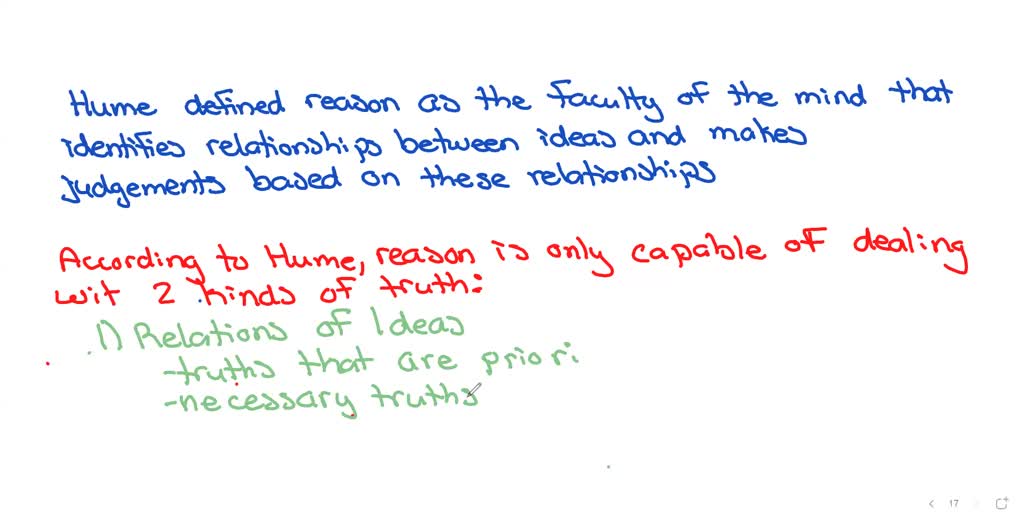 Hume defined reason as the faculty of the mind that
identifies relationships between ideas and makes
judgements based on these relationships
According to Hume, reason is only capable of dealing
wit 2 kinds of truth:
1) Relations of Ideas
-truths that are priori
-necessary truths
17